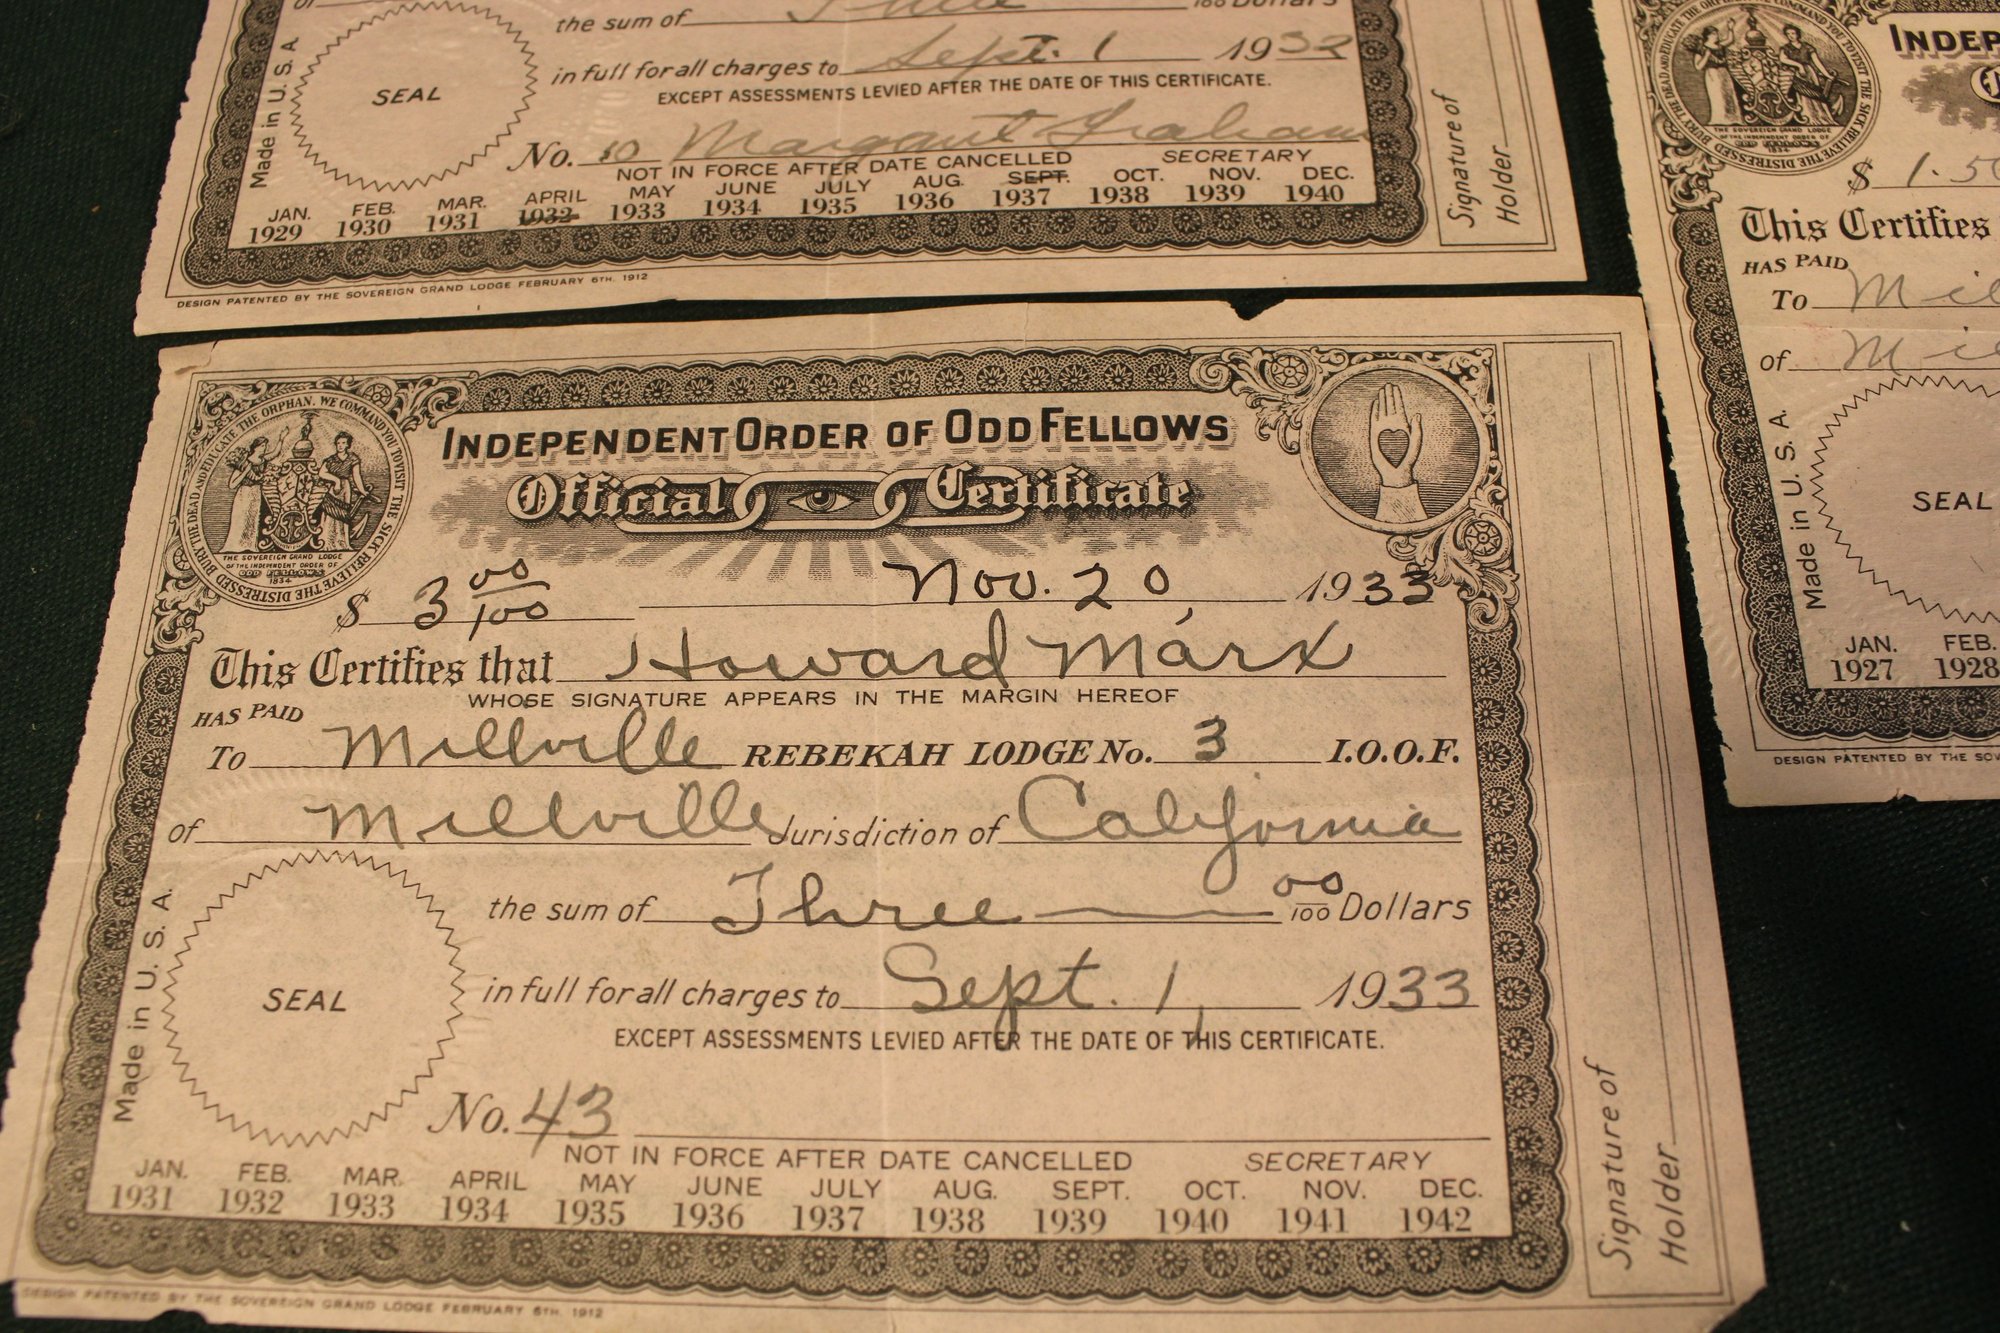 the sum of Three 100 Dollars
in full for all charges to Sept. 1 1932
EXCEPT ASSESSMENTS LEVIED AFTER THE DATE OF THIS CERTIFICATE.
SEAL
Made in U.S.A
No. 10 Margaret Graham
NOT IN FORCE AFTER DATE CANCELLED SECRETARY
JAN. FEB. MAR. APRIL MAY JUNE JULY AUG. SEPT. OCT. NOV. DEC.
1929 1930 1931 1932 1933 1934 1935 1936 1937 1938 1939 1940
DESIGN PATENTED BY THE SOVEREIGN GRAND LODGE FEBRUARY 6TH, 1912
Signature of
Holder
INDEPENDENT ORDER OF ODD FELLOWS
Official Certificate
WE COMMAND YOU TO VISIT THE SICK RELIEVE THE DISTRESSED BURY THE DEAD AND EDUCATE THE ORPHAN.
THE SOVEREIGN GRAND LODGE
OF THE INDEPENDENT ORDER OF
ODD FELLOWS
1834
$ 3 00/100 Nov. 20, 1933
This Certifies that Howard Marx
WHOSE SIGNATURE APPEARS IN THE MARGIN HEREOF
HAS PAID
To Millville REBEKAH LODGE No. 3 I.O.O.F.
of Millville Jurisdiction of California
the sum of Three 00/100 Dollars
in full for all charges to Sept. 1, 1933
EXCEPT ASSESSMENTS LEVIED AFTER THE DATE OF THIS CERTIFICATE.
SEAL
Made in U.S.A.
No. 43
NOT IN FORCE AFTER DATE CANCELLED SECRETARY
JAN. FEB. MAR. APRIL MAY JUNE JULY AUG. SEPT. OCT. NOV. DEC.
1931 1932 1933 1934 1935 1936 1937 1938 1939 1940 1941 1942
DESIGN PATENTED BY THE SOVEREIGN GRAND LODGE FEBRUARY 6TH, 1912
Signature of
Holder
INDEP
COMMAND YOU TO VISIT THE SICK RELIEVE THE DISTRESSED BURY THE DEAD AND EDUCATE THE
THE SOVEREIGN GRAND LODGE
OF THE INDEPENDENT ORDER OF
ODD FELLOWS
1834
$ 1.50
This Certifies
HAS PAID
To Mil
of Mil
SEAL
Made in U.S.A.
JAN. FEB.
1927 1928
DESIGN PATENTED BY THE SOV